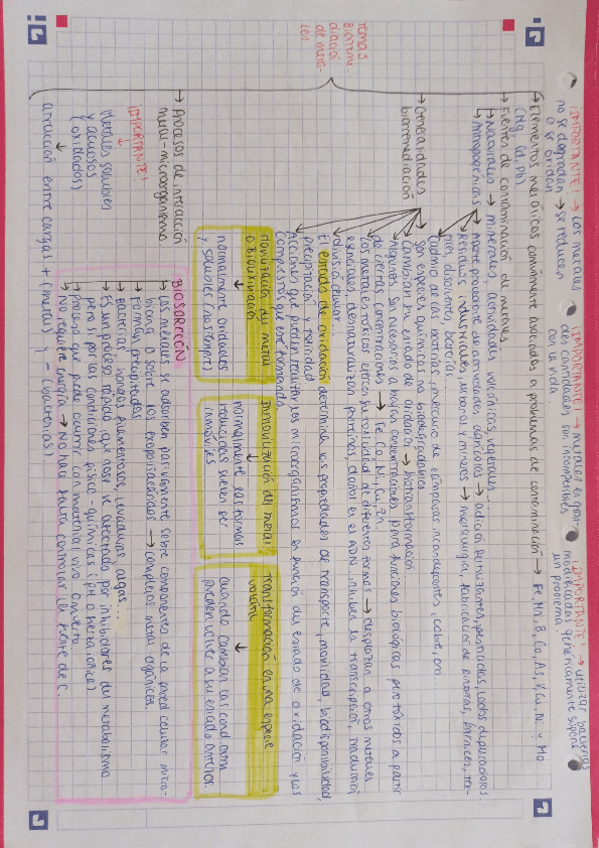 ¡IMPORTANTE! → los metales no se degradan → se reducen o se oxidan
¡IMPORTANTE! → metales en grandes cantidades son incompatibles con la vida.
¡IMPORTANTE! → utilizar bacterias modificadas genéticamente supone un problema.
TEMA 5
BIORREMEDIACIÓN DE METALES
→ Elementos metálicos comúnmente asociados a problemas de contaminación → Fe, Mn, B, Co, As, V, Cu, Ni y Mo
(Hg, Cd, Pb)
→ Fuentes de contaminación de metales
→ Naturales → minerales, actividades volcánicas, vegetales
→ Antropogénicas → Aporte proveniente de actividades agrícolas → adición fertilizantes, pesticidas, lodos depuradoras.
Residuos industriales, urbanos y mineros → metalurgia, fabricación de pinturas, barnices, tintes, disolventes, baterías.
Cadmio de las baterías, mercurio de lámparas incandescentes, cobre, oro
→ Generalidades biorremediación
son especies químicas no biodegradables
Cambian su estado de oxidación → biotransformación
Algunos son necesarios a bajas concentraciones para funciones biológicas pero tóxicos a partir de ciertas concentraciones → Fe, Co, Ni, Cu, Zn
Los metales tóxicos ejercen su toxicidad de diferentes formas → desplazan a otros metales esenciales, desnaturalizan proteínas, dañan el ADN, inhiben la transcripción, traducción, división celular.
El estado de oxidación determina las propiedades de transporte, movilidad, biodisponibilidad, precipitación y toxicidad
Acciones que pueden realizar los microorganismos en función del estado de oxidación y los compuestos que esté formando
→ Procesos de interacción metal-microorganismo
Movilización del metal o Biolixiviación
↓
normalmente oxidados y solubles (no siempre)
Inmovilización del metal
↓
normalmente las formas reducidas suelen ser inmóviles
Transformación en una especie volátil
↓
cuando cambian las cond. atm pueden volver a su estado anterior.
¡IMPORTANTE!
↓
Metales solubles y acuosos (oxidados)
↓
atracción entre cargas + (metal) y - (bacterias)
BIOSORCIÓN
→ Los metales se adsorben pasivamente sobre componentes de la pared celular microbiana o sobre los exopolisacáridos → complejos metal-orgánicos.
→ Forman precipitados
→ bacterias, hongos filamentosos, levaduras, algas...
→ Es un proceso rápido que no se ve afectado por inhibidores del metabolismo pero sí por las condiciones físico-químicas (pH o fuerza iónica).
→ Proceso que puede ocurrir con materia viva o muerta
→ No requiere energía → No hace falta controlar la fuente de C.